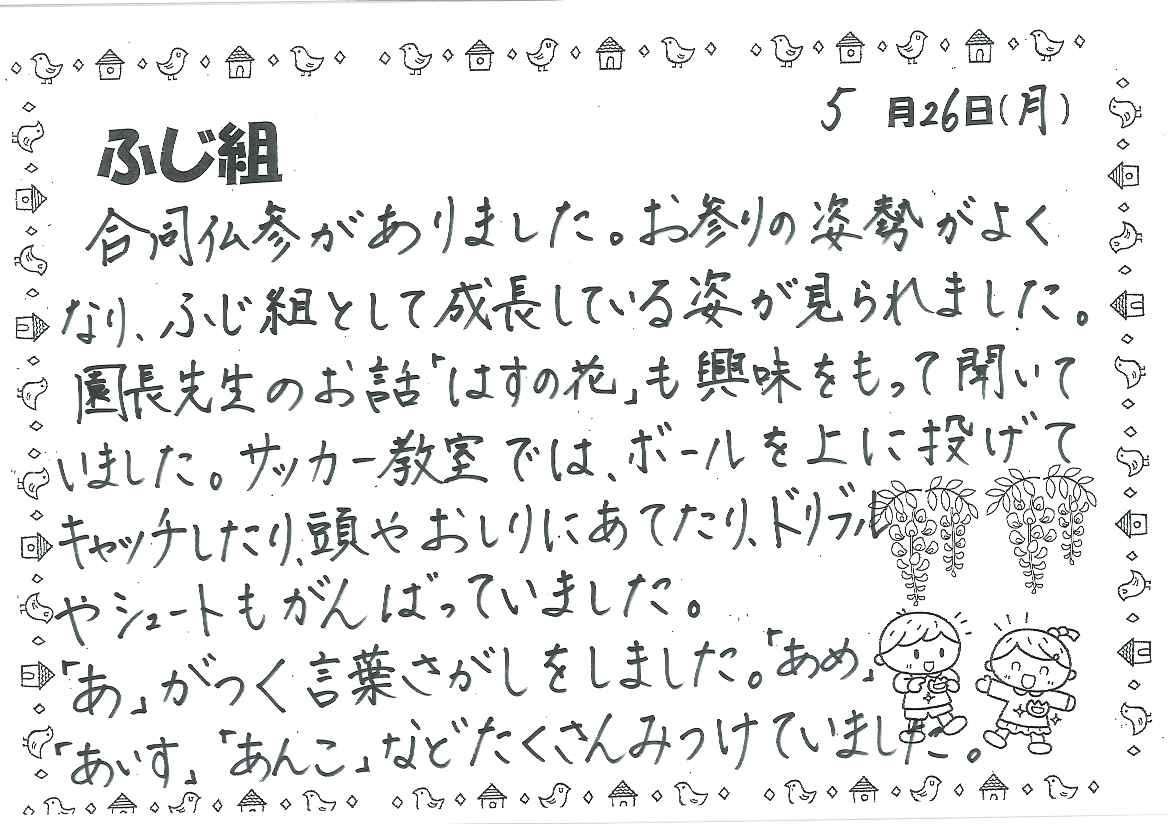 5月26日(月)
ふじ組
合同仏参がありました。お参りの姿勢がよく
なり、ふじ組として成長している姿が見られました。
園長先生のお話「はすの花」も興味をもって聞いて
いました。サッカー教室では、ボールを上に投げて
キャッチしたり、頭やおしりにあてたり、ドリブル
やシュートもがんばっていました。
「あ」がつく言葉さがしをしました。「あめ」
「あいす」「あんこ」などたくさんみつけていました。